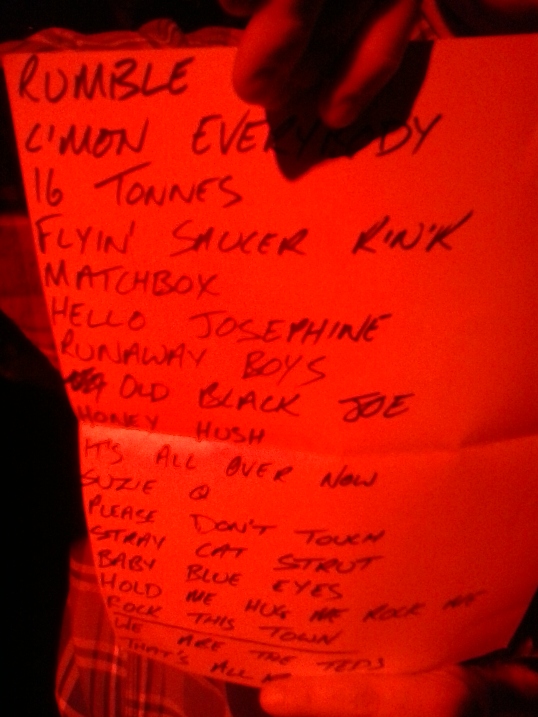 RUMBLE
C'MON EVERYBODY
16 TONNES
FLYIN' SAUCER R'N'R
MATCHBOX
HELLO JOSEPHINE
RUNAWAY BOYS
OLD BLACK JOE
HONEY HUSH
IT'S ALL OVER NOW
SUZIE Q
PLEASE DON'T TOUCH
STRAY CAT STRUT
BABY BLUE EYES
HOLD ME HUG ME ROCK ME
ROCK THIS TOWN
WE ARE THE TEDS
THAT'S ALL